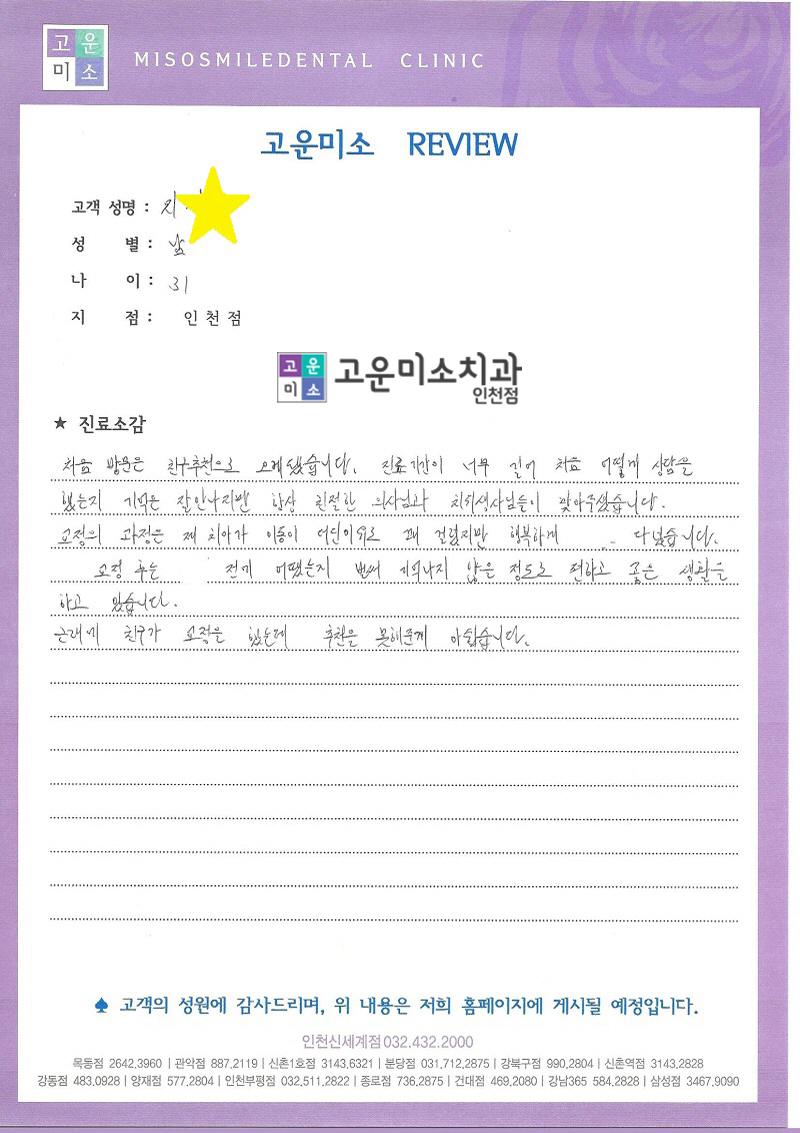 고운
미소
MISOSMILEDENTAL CLINIC
고운미소 REVIEW
고객 성명 : 지
성 별 : 남
나 이 : 31
지 점 : 인천점
고운
미소
고운미소치과
인천점
★ 진료소감
처음 방문은 친구추천으로 오게됐습니다. 진료기간이 너무 길어 처음 어떻게 상담을
했는지 기억은 잘안나지만 항상 친절한 의사님과 치위생사님들이 맞아주셨습니다.
교정의 과정은 제 치아가 이동이 더딘이유로 꽤 걸렸지만 행복하게 다녔습니다.
교정 후는 전기 어땠는지 벌써 기억나지 않은 정도로 편하고 좋은 생활을
하고 있습니다.
근래에 친구가 교정을 했는데 추천을 못해준게 아쉽습니다.
♠ 고객의 성원에 감사드리며, 위 내용은 저희 홈페이지에 게시될 예정입니다.
인천신세계점 032.432.2000
목동점 2642,3960 | 관악점 887,2119 | 신촌1호점 3143,6321 | 분당점 031,712,2875 | 강북구점 990,2804 | 신촌역점 3143,2828
강동점 483,0928 | 양재점 577,2804 | 인천부평점 032,511,2822 | 종로점 736,2875 | 건대점 469,2080 | 강남365 584,2828 | 삼성점 3467,9090